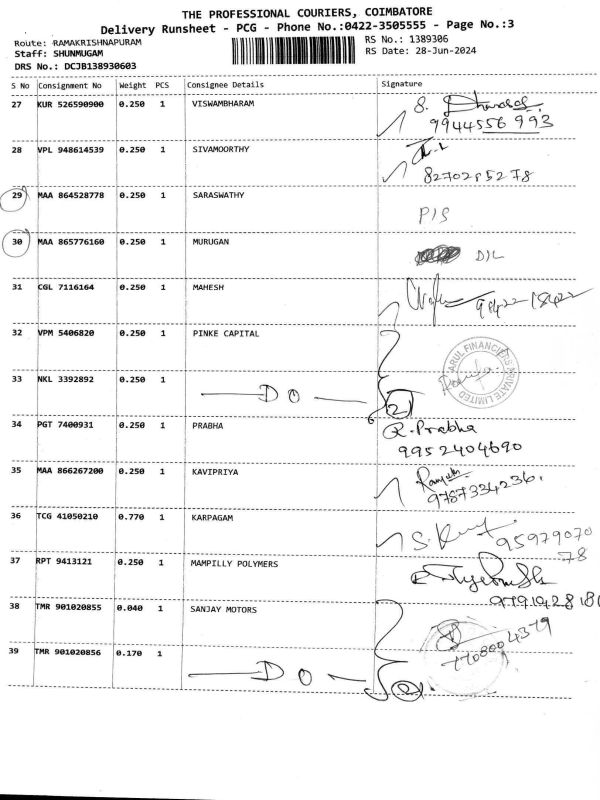 THE PROFESSIONAL COURIERS, COIMBATORE
Delivery Runsheet - PCG - Phone No.:0422-3505555 - Page No.:3
Route: RAMAKRISHNAPURAM RS No.: 1389306
Staff: SHUNMUGAM RS Date: 28-Jun-2024
DRS No.: DCJB138930603
S No Consignment No Weight PCS Consignee Details Signature
27 KUR 526590900 0.250 1 VISWAMBHARAM S.
9944556 993
28 VPL 948614539 0.250 1 SIVAMOORTHY
29 MAA 864528778 0.250 1 SARASWATHY
P/S
30 MAA 865776160 0.250 1 MURUGAN
D/L
31 CGL 7116164 0.250 1 MAHESH
32 VPM 5406820 0.250 1 PINKE CAPITAL
ARUL FINANCIERS PRIVATE LIMITED
33 NKL 3392892 0.250 1 DO 2
34 PGT 7400931 0.250 1 PRABHA R. Prabha
9952404690
35 MAA 866267200 0.250 1 KAVIPRIYA
9787334236.
36 TCG 41050210 0.770 1 KARPAGAM S.
95979070
78
37 RPT 9413121 0.250 1 MAMPILLY POLYMERS
38 TMR 901020855 0.040 1 SANJAY MOTORS
7708004379
39 TMR 901020856 0.170 1 DO 2